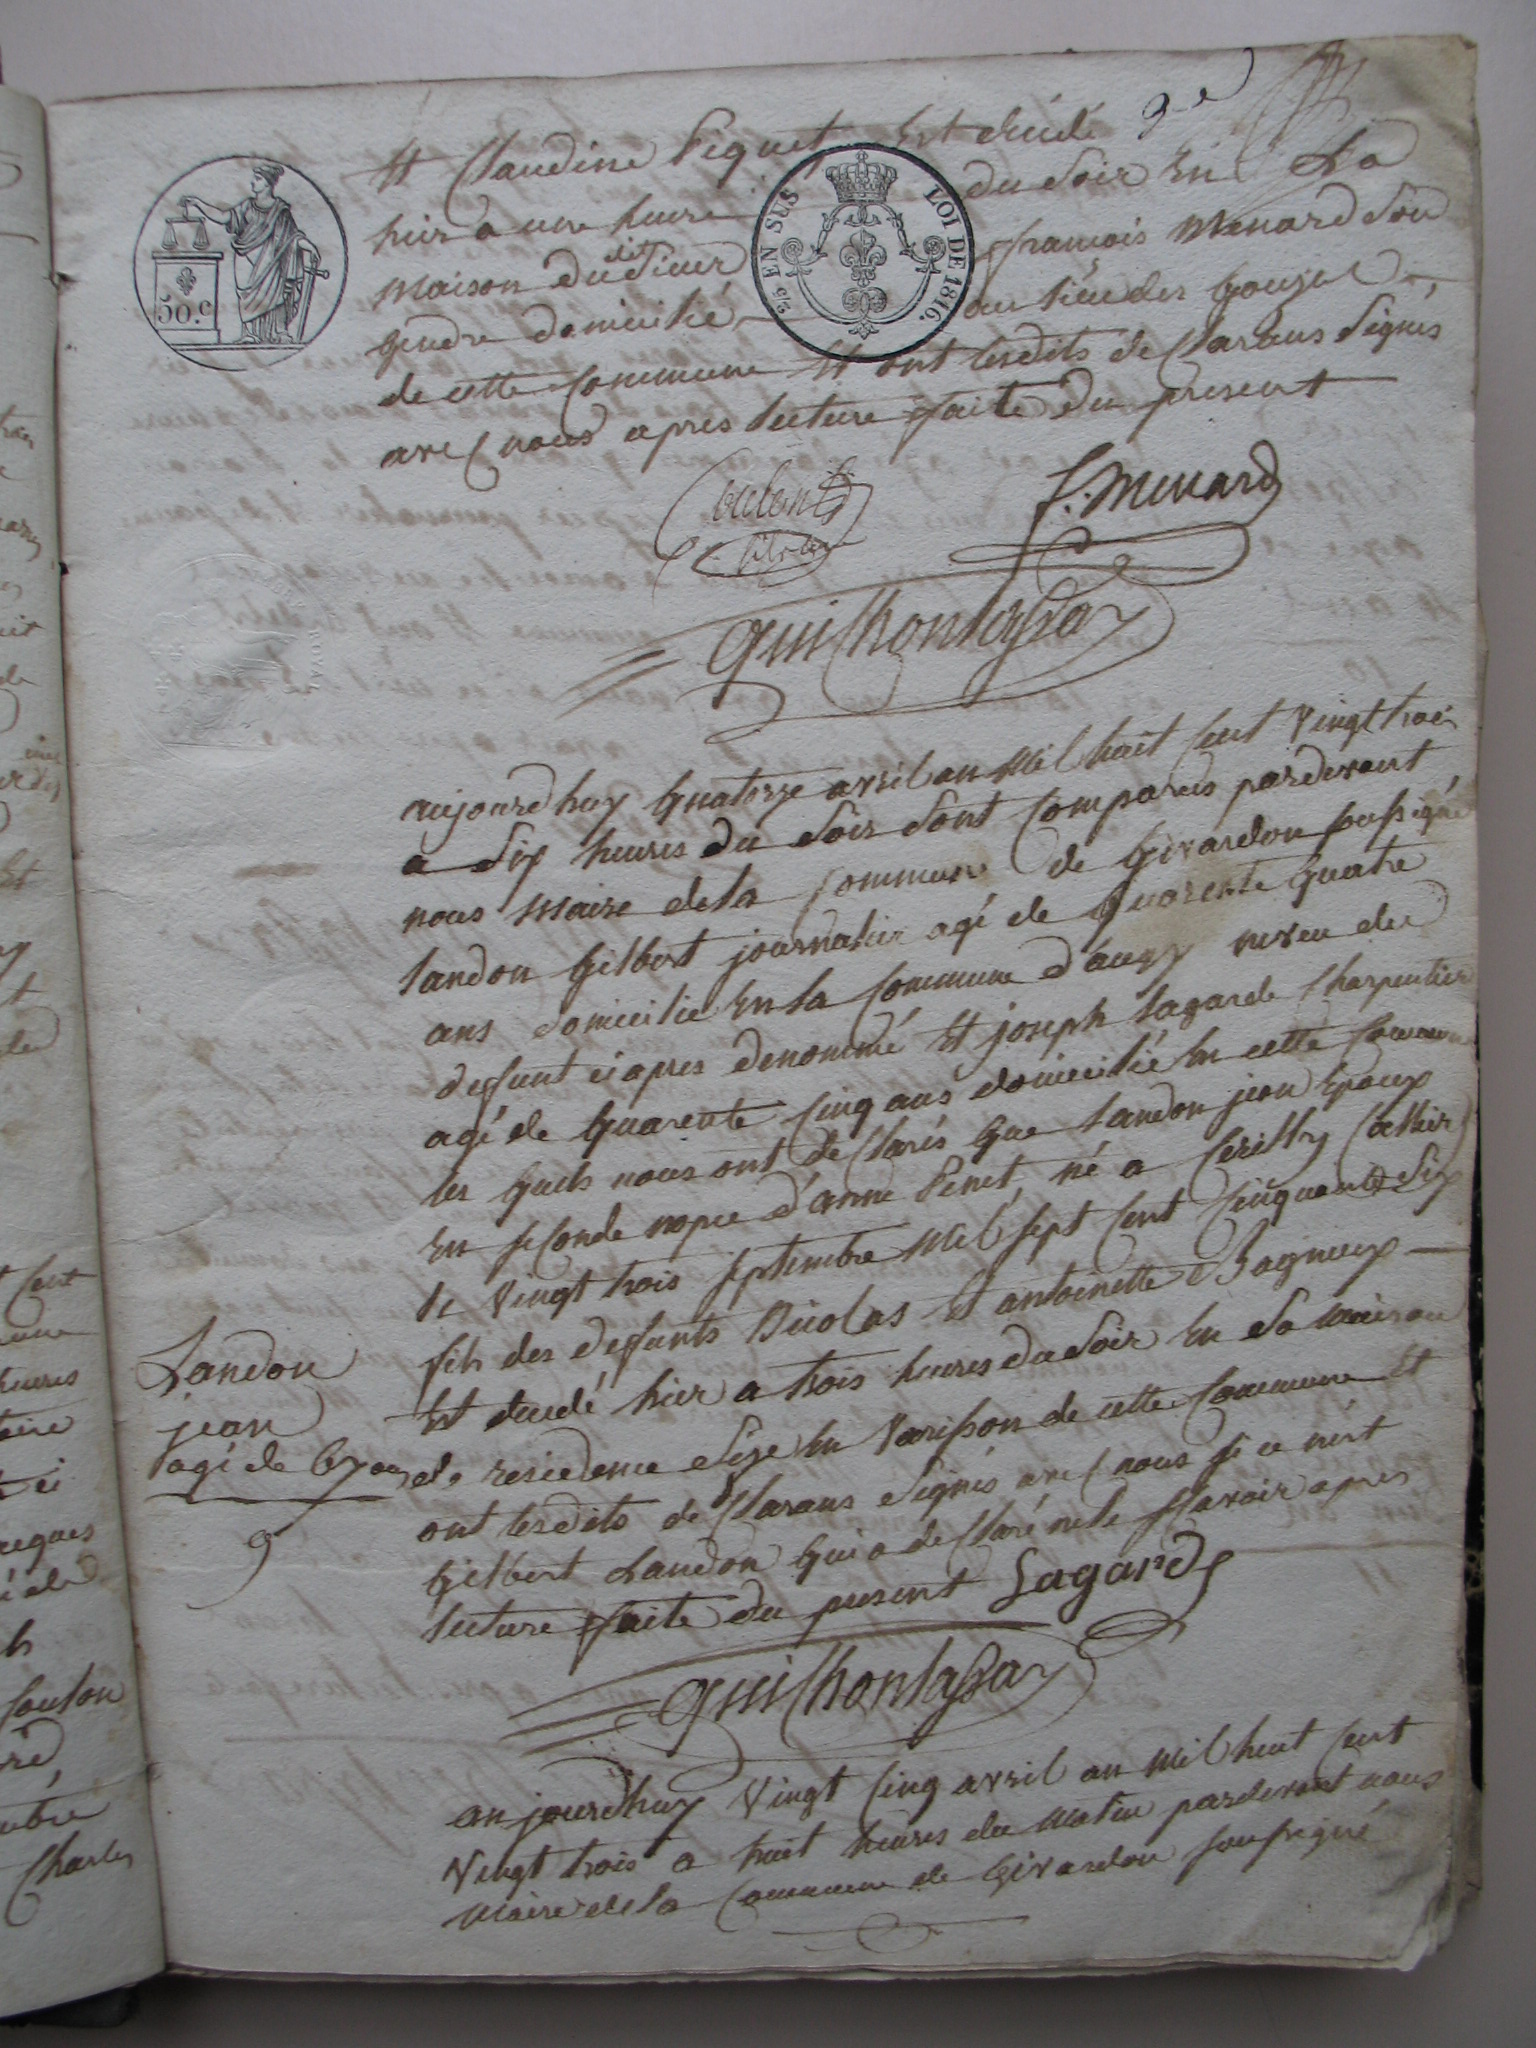 Et Claudine Piquet Est décédé 9e
hier a une heure du Soir En La
maison du dit Sieur françois Menard Son
gendre domicilié au lieu des gouzeu
de cette Commune Et ont lesdits declarans Signés
avec nous apres lecture faite du present
50.c
2/5 EN SUS LOI DE 1816.
f. menard
aujourdhuy quatorze avril an Mil huit Cent vingt trois
a Six heures du Soir Sont Comparus pardevant
nous Maire de la Commune de Givardon soussigné
landon Gilbert journalier agé de Quarente quatre
ans domicilié En la Commune d'augy neveu du
defunt ci apres denommé Et joseph lagarde Charpentier
agé de quarente Cinq ans domicilié En cette Commune
les quels nous ont declarés que landon jean Epoux
En seconde nopce d'anne Penet né a Cerilly (allier)
le vingt trois septembre Mil sept Cent Cinquante Six
fils des defunts Nicolas Et antoinette Bagneux
Landon
jean
agé de 67 ans
9
Est decedé hier a trois heures du Soir En Sa maison
de residence Size En Varisson de cette Commune Et
ont lesdits declarans Signés avec nous si ce n'est
Gilbert Landon qui a declaré ne le sçavoir apres
lecture faite du present Lagarde
aujourdhuy vingt Cinq avril an Mil huit Cent
vingt trois a huit heures du Matin pardevant nous
Maire de la Commune de Givardon soussigné